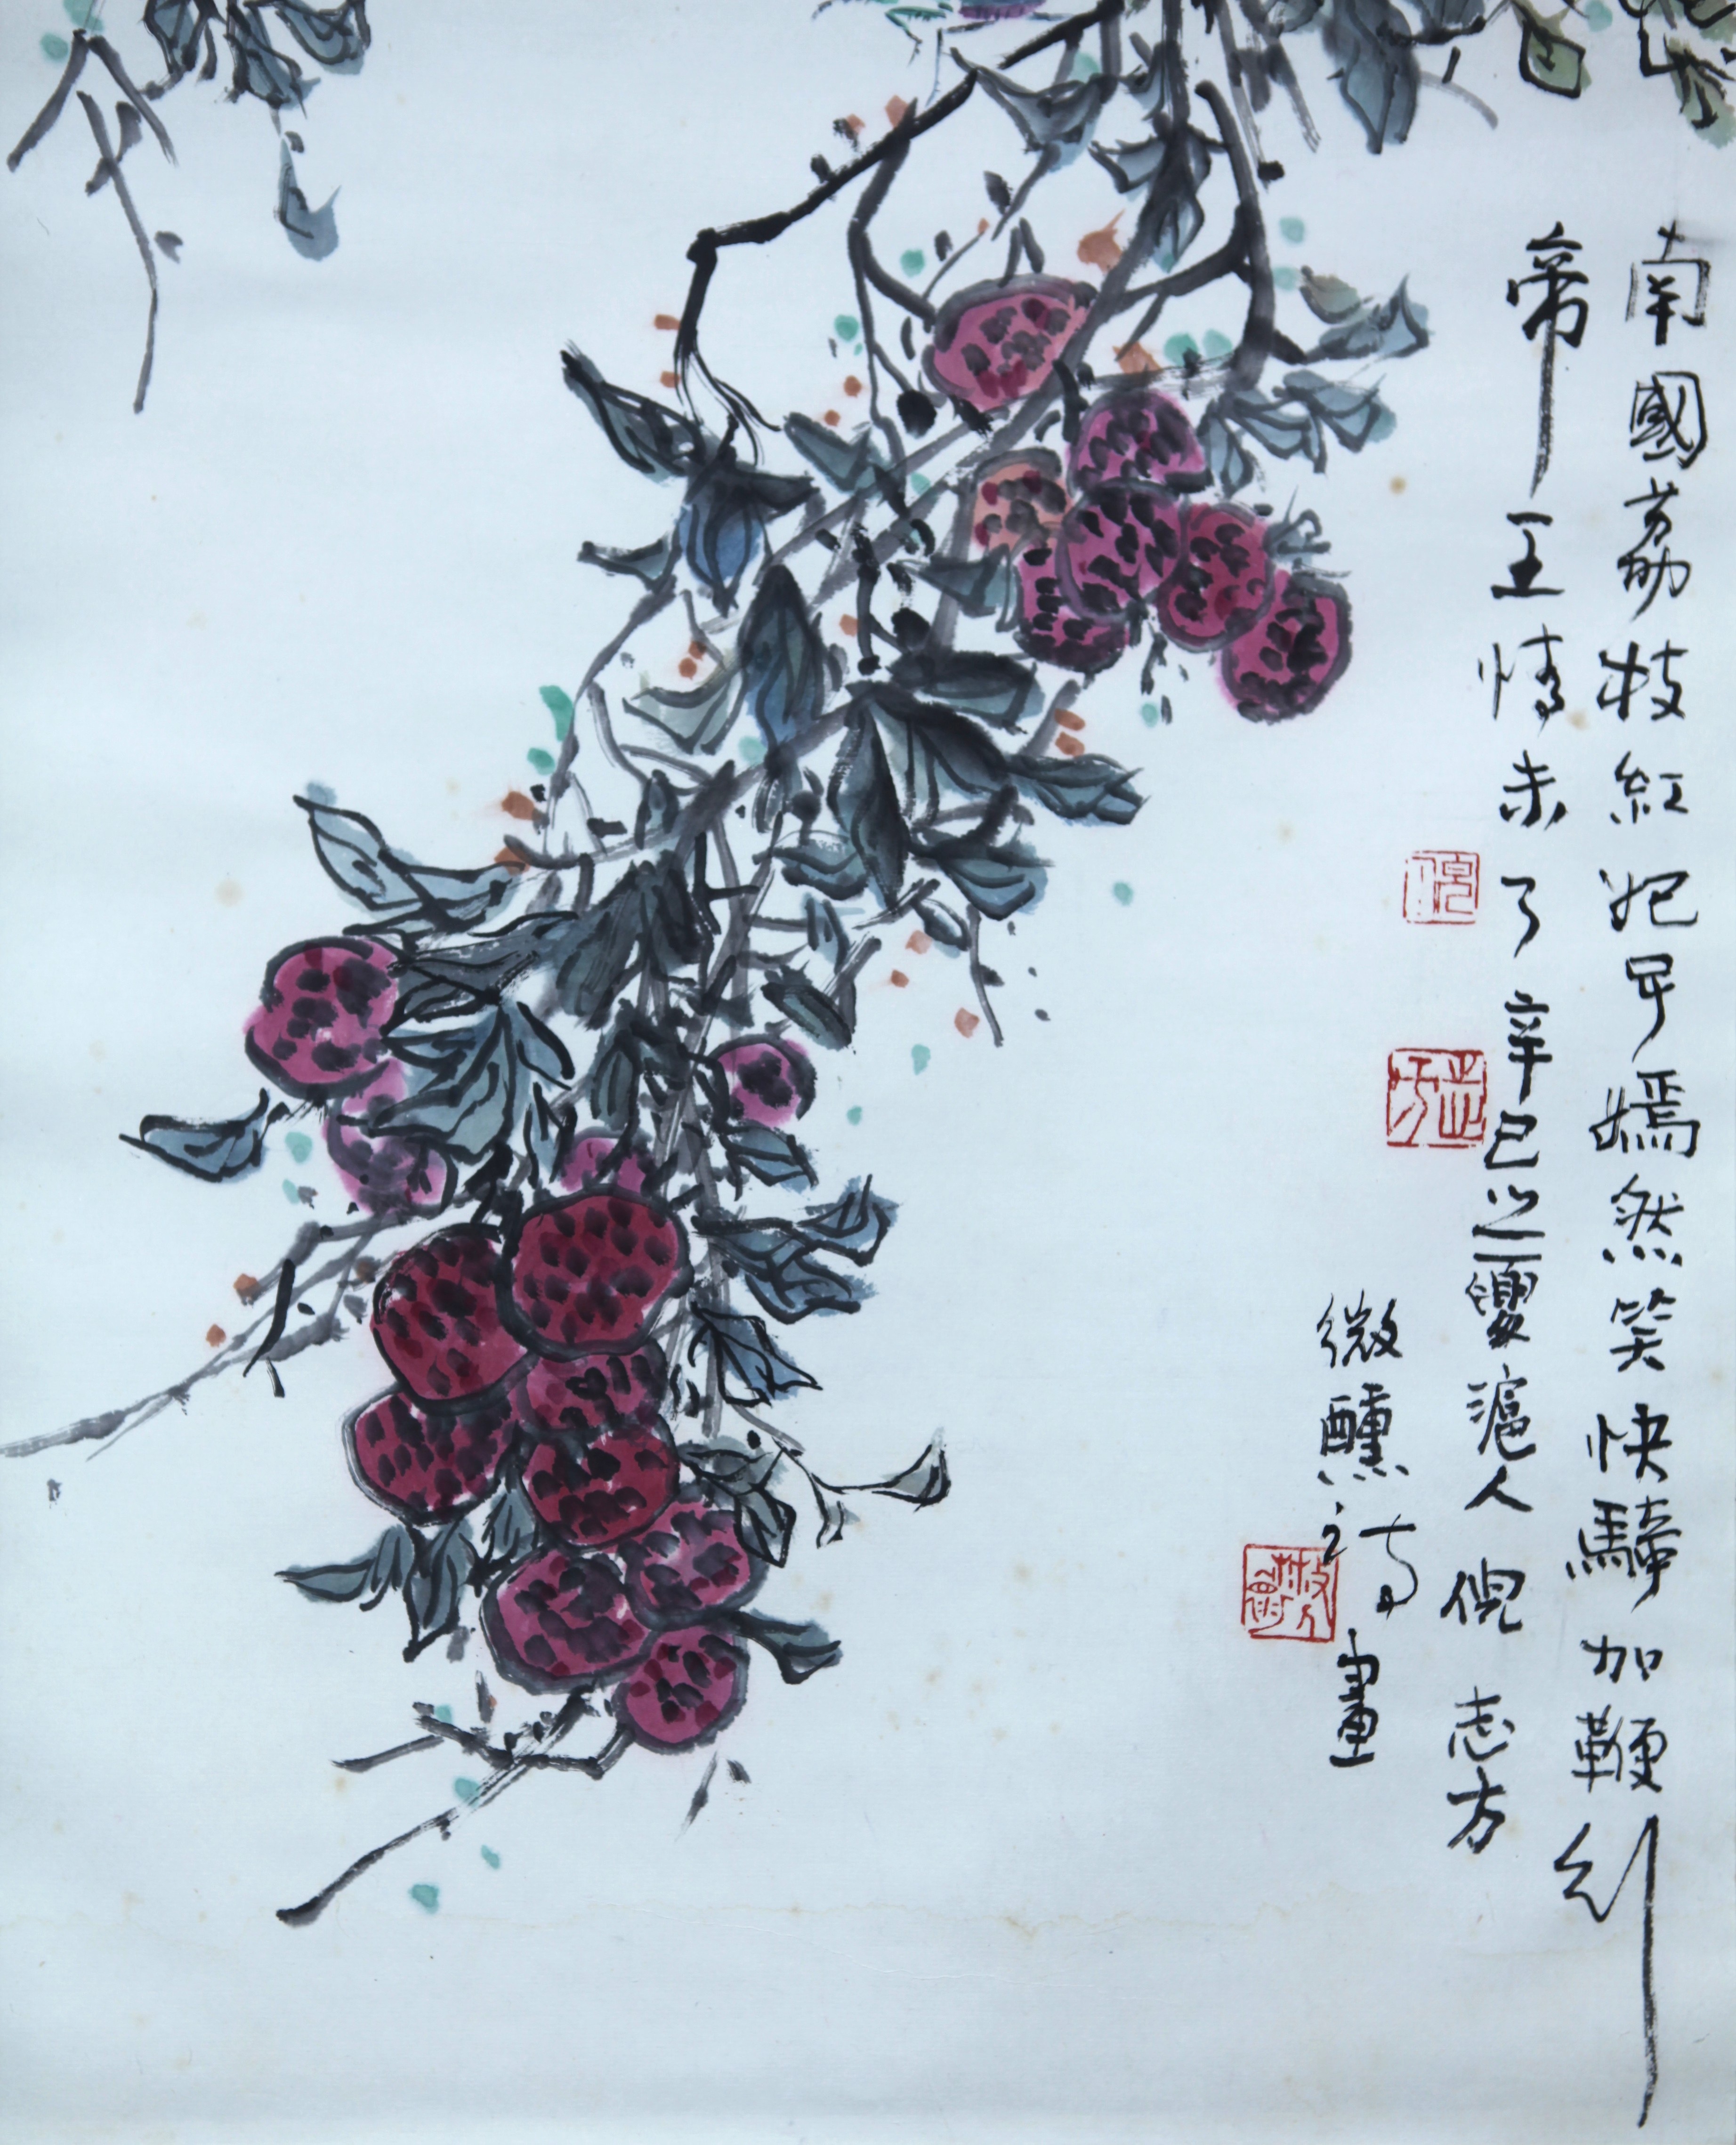 南國荔枝紅妃子嫣然笑快騎加鞭糾
帝王情未了辛巳之夏滬人倪志方
微醺之为畫
倪
志方